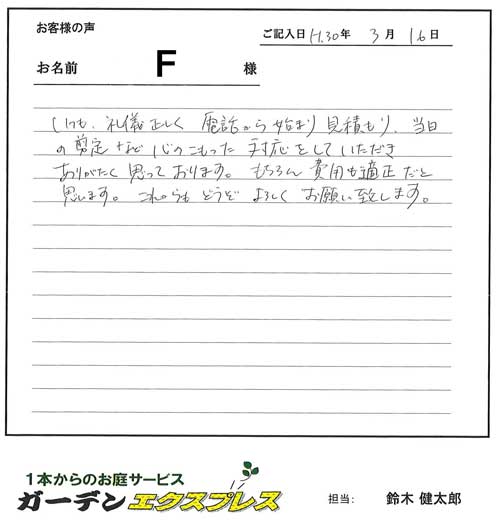 お客様の声
ご記入日 H.30年 3月 16日
お名前 F 様
いつも、礼儀正しく 電話から始まり 見積もり、当日
の 剪定 など 心のこもった 対応をしていただき
ありがたく思っております。もちろん 費用も適正だと
思います。これからも どうぞ よろしく お願い致します。
1本からのお庭サービス
ガーデンエクスプレス
担当: 鈴木 健太郎